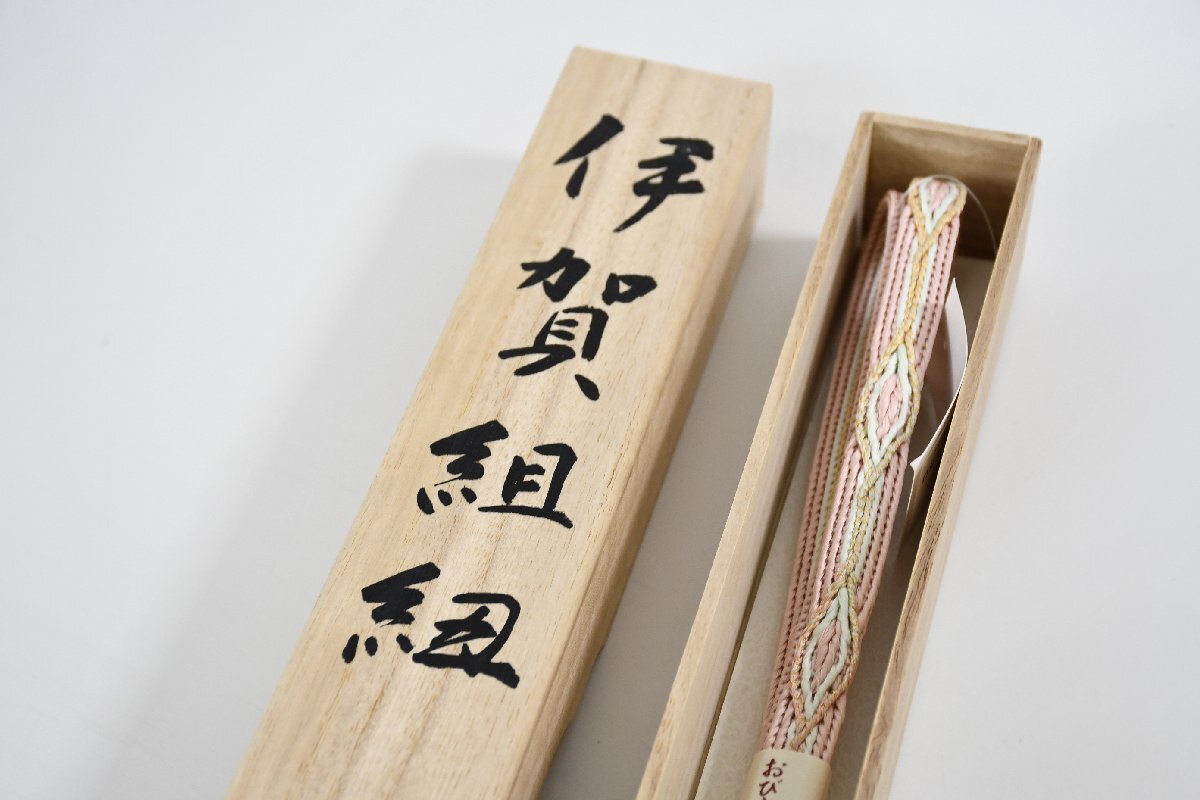 伊賀組紐
おび